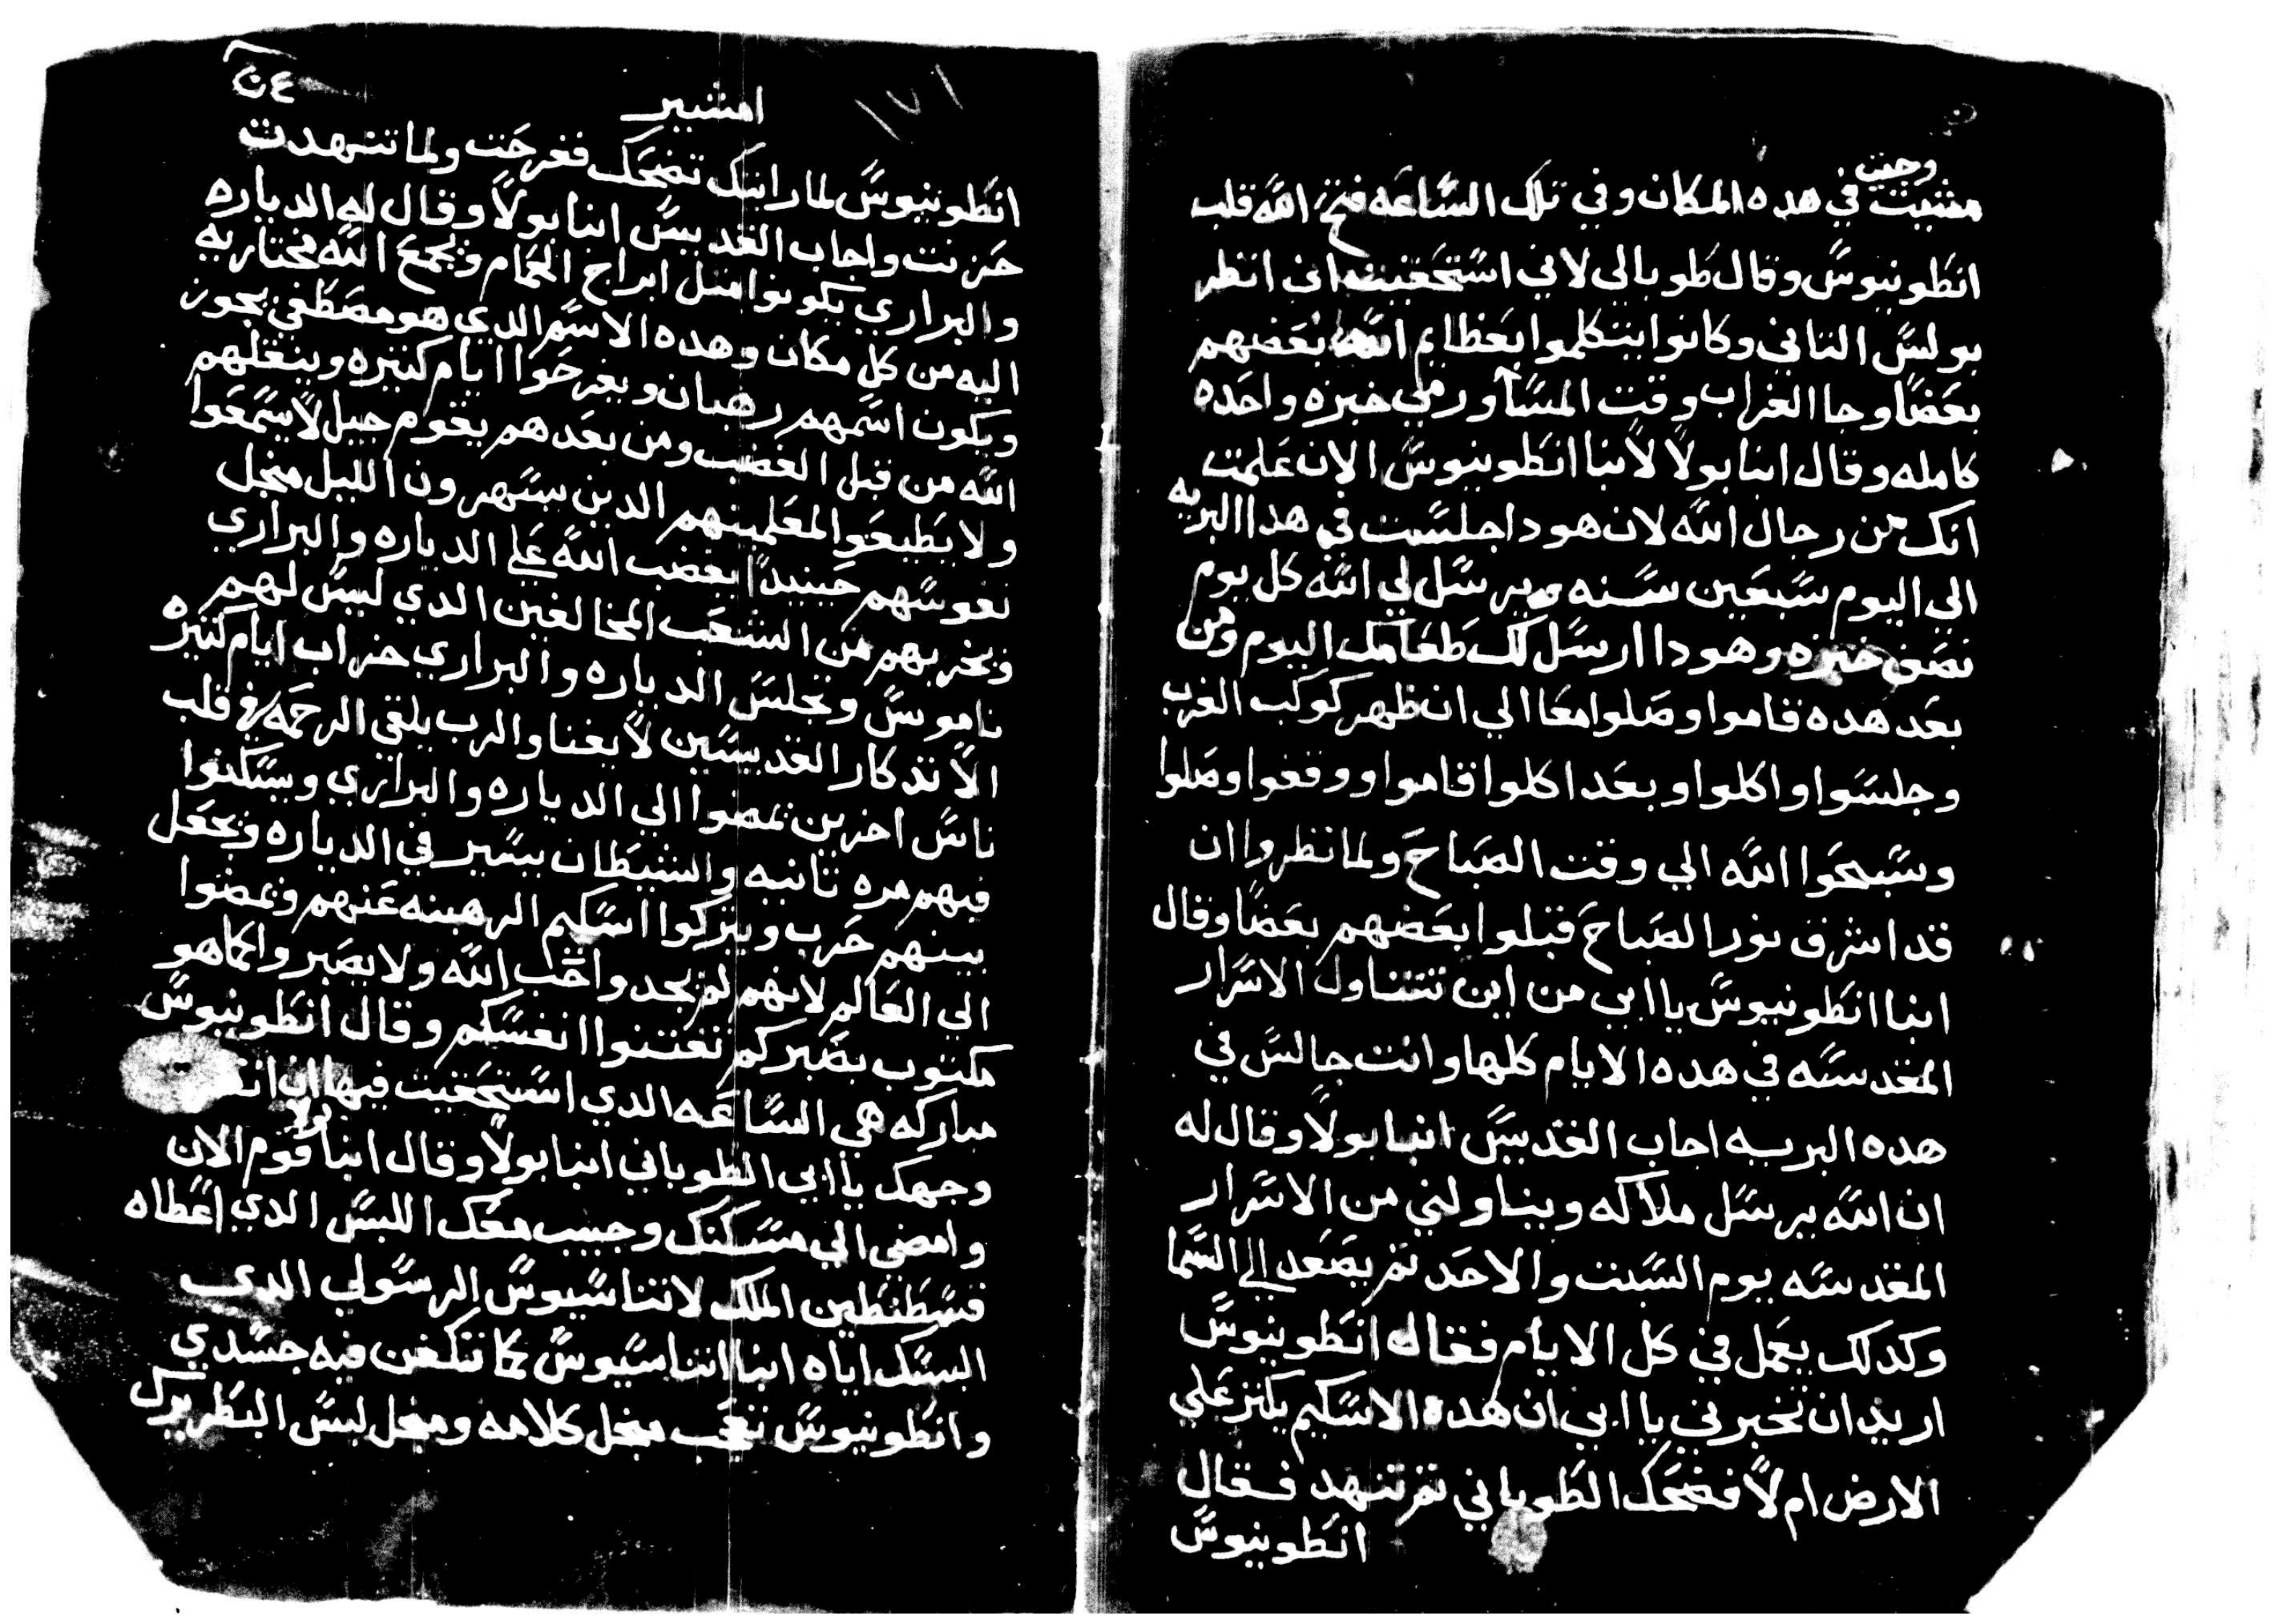 وجيت
مشيت في هده المكان وفي تلك الساعه فتح الله قلب
انطونيوس وقال طوبا لي لاني استحقيت ان انظر
بولس التاني وكانوا يتكلموا بعظايم الله بعضهم
بعضا وجا الغراب وقت المسا ورمي خبزه واحده
كامله وقال انبا بولا لانبا انطونيوس الان علمت
انك من رجال الله لان هودا جلست في هدا البريه
الي اليوم سبعين سنه ويرسل لي الله كل يوم
نصف خبزه وهودا ارسل لك طعامك اليوم ومن
بعد هده قاموا وصلوا معا الي ان ظهر كوكب الغرب
وجلسوا واكلوا وبعد اكلوا قاموا ووقفوا وصلوا
وسبحوا الله الي وقت الصباح ولما نظروا ان
قد اشرف نور الصباح قبلوا بعضهم بعضا وقال
انبا انطونيوس يا ابي من اين تتناول الاسرار
المقدسه في هده الايام كلها وانت جالس في
هده البريه اجاب القديس انبا بولا وقال له
ان الله يرسل ملاكه ويناولني من الاسرار
المقدسه يوم السبت والاحد تم يصعد الي السما
وكدلك يعمل في كل الايام فقال انطونيوس
اريد ان تخبرني يا ابي ان هده الاسكيم يكتر علي
الارض ام لا فضحك الطوباني تم تنهد فقال
انطونيوس
١٧١
امشير
انطونيوس لما رايتك تضحك ففرحت ولما تنهدت
حزنت واجاب القديس انبا بولا وقال له الدياره
والبراري يكونوا متل ابراج الحمام ويجمع الله مختاريه
اليه من كل مكان وهده الاسم الدي هو مصطفي يجوز
ويكون اسمهم رهبان ويفرحوا ايام كتيره وينقلهم
الله من قبل الغضب ومن بعدهم يقوم جيل لا يسمعوا
ولا يطيعوا لمعلمينهم الدين يسهرون الليل منجل
نفوسهم حينيدا يغضب الله علي الدياره والبراري
ويخربهم من الشعب المخالفين الدي ليس لهم
ناموس ويجلس الدياره والبراري خراب ايام كتيره
الا تدكار القديسين لا يفنا والرب يلقي الرحمه في قلب
ناس اخرين يمضوا الي الدياره والبراري ويسكنوا
فيهم مره تانيه والشيطان يسير في الدياره ويجعل
بينهم حرب ويتركوا اسكيم الرهبنه عنهم ويمضوا
الي العالم لانهم لم يجدوا حب الله ولا يصبروا كما هو
مكتوب بصبركم تقتنوا انفسكم وقال انطونيوس
مباركه هي الساعه الدي استحقيت فيها ان
وجهك يا ابي الطوباني انبا بولا وقال انبا بولا قوم الان
وامضي الي مسكنك وجيب معك اللبس الدي اعطاه
قسطنطين الملك لاتناسيوس الرسولي الدي
البسك اياه انبا اتناسيوس كما تتكفن فيه جسدي
وانطونيوس تعجب منجل كلامه ومنجل لبس البطريرك